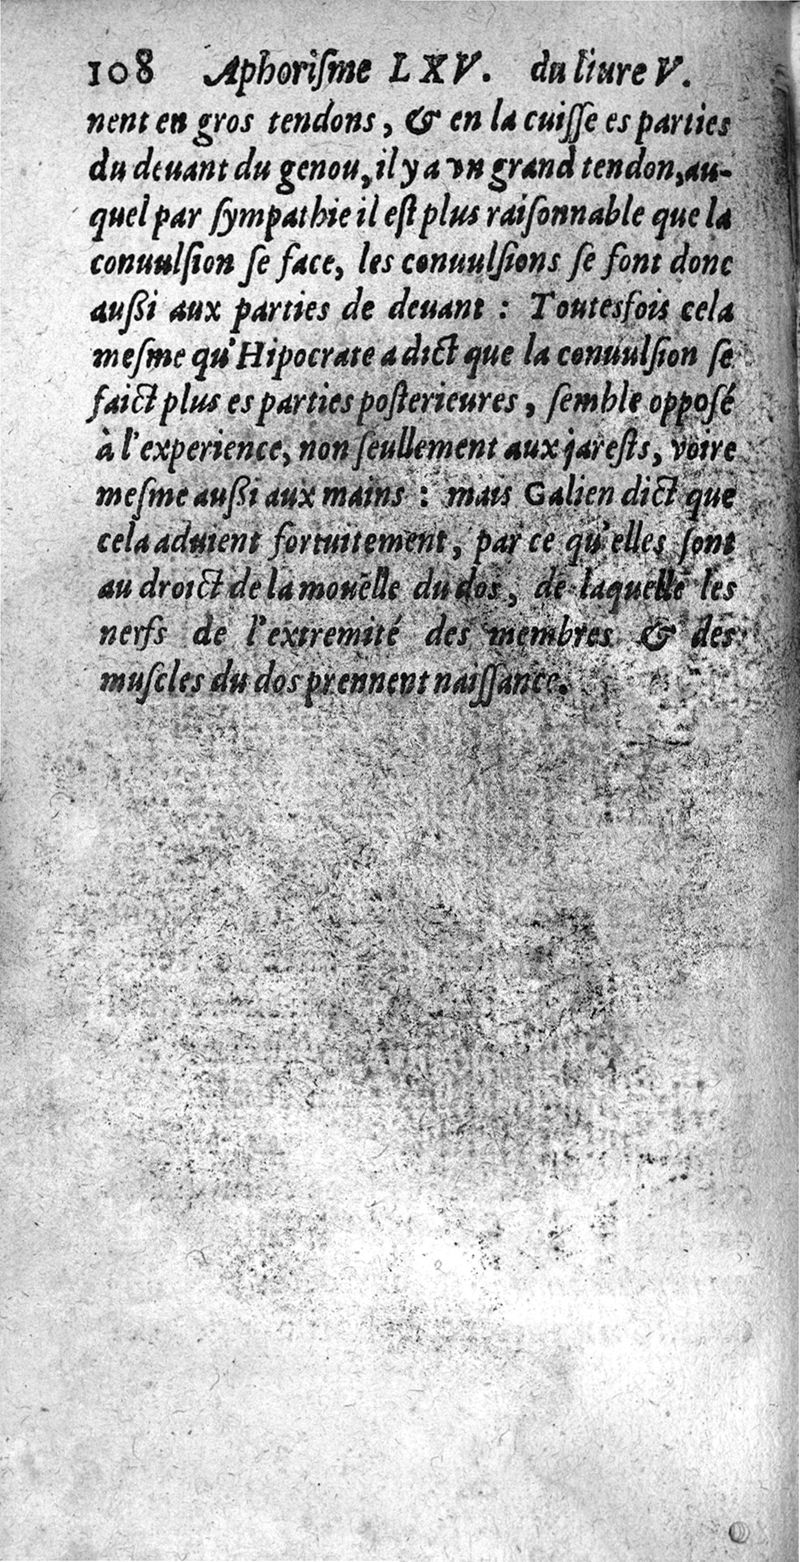 108 Aphoriſme LXV. du liure V.
nent en gros tendons, & en la cuiſſe es parties
du deuant du genou, il y a vn grand tendon, au-
quel par ſympathie il eſt plus raiſonnable que la
conuulſion ſe face, les conuulſions ſe font donc
außi aux parties de deuant : Toutesfois cela
meſme qu'Hipocrate a dict que la conuulſion ſe
faict plus es parties poſterieures, ſemble oppoſé
à l'experience, non ſeullement aux jareſts, voire
meſme außi aux mains : mais Galien dict que
cela aduient fortuitement, par ce qu'elles ſont
au droict de la mouëlle du dos, de laquelle les
nerfs de l'extremité des membres & des
muſcles du dos prennent naiſſance.